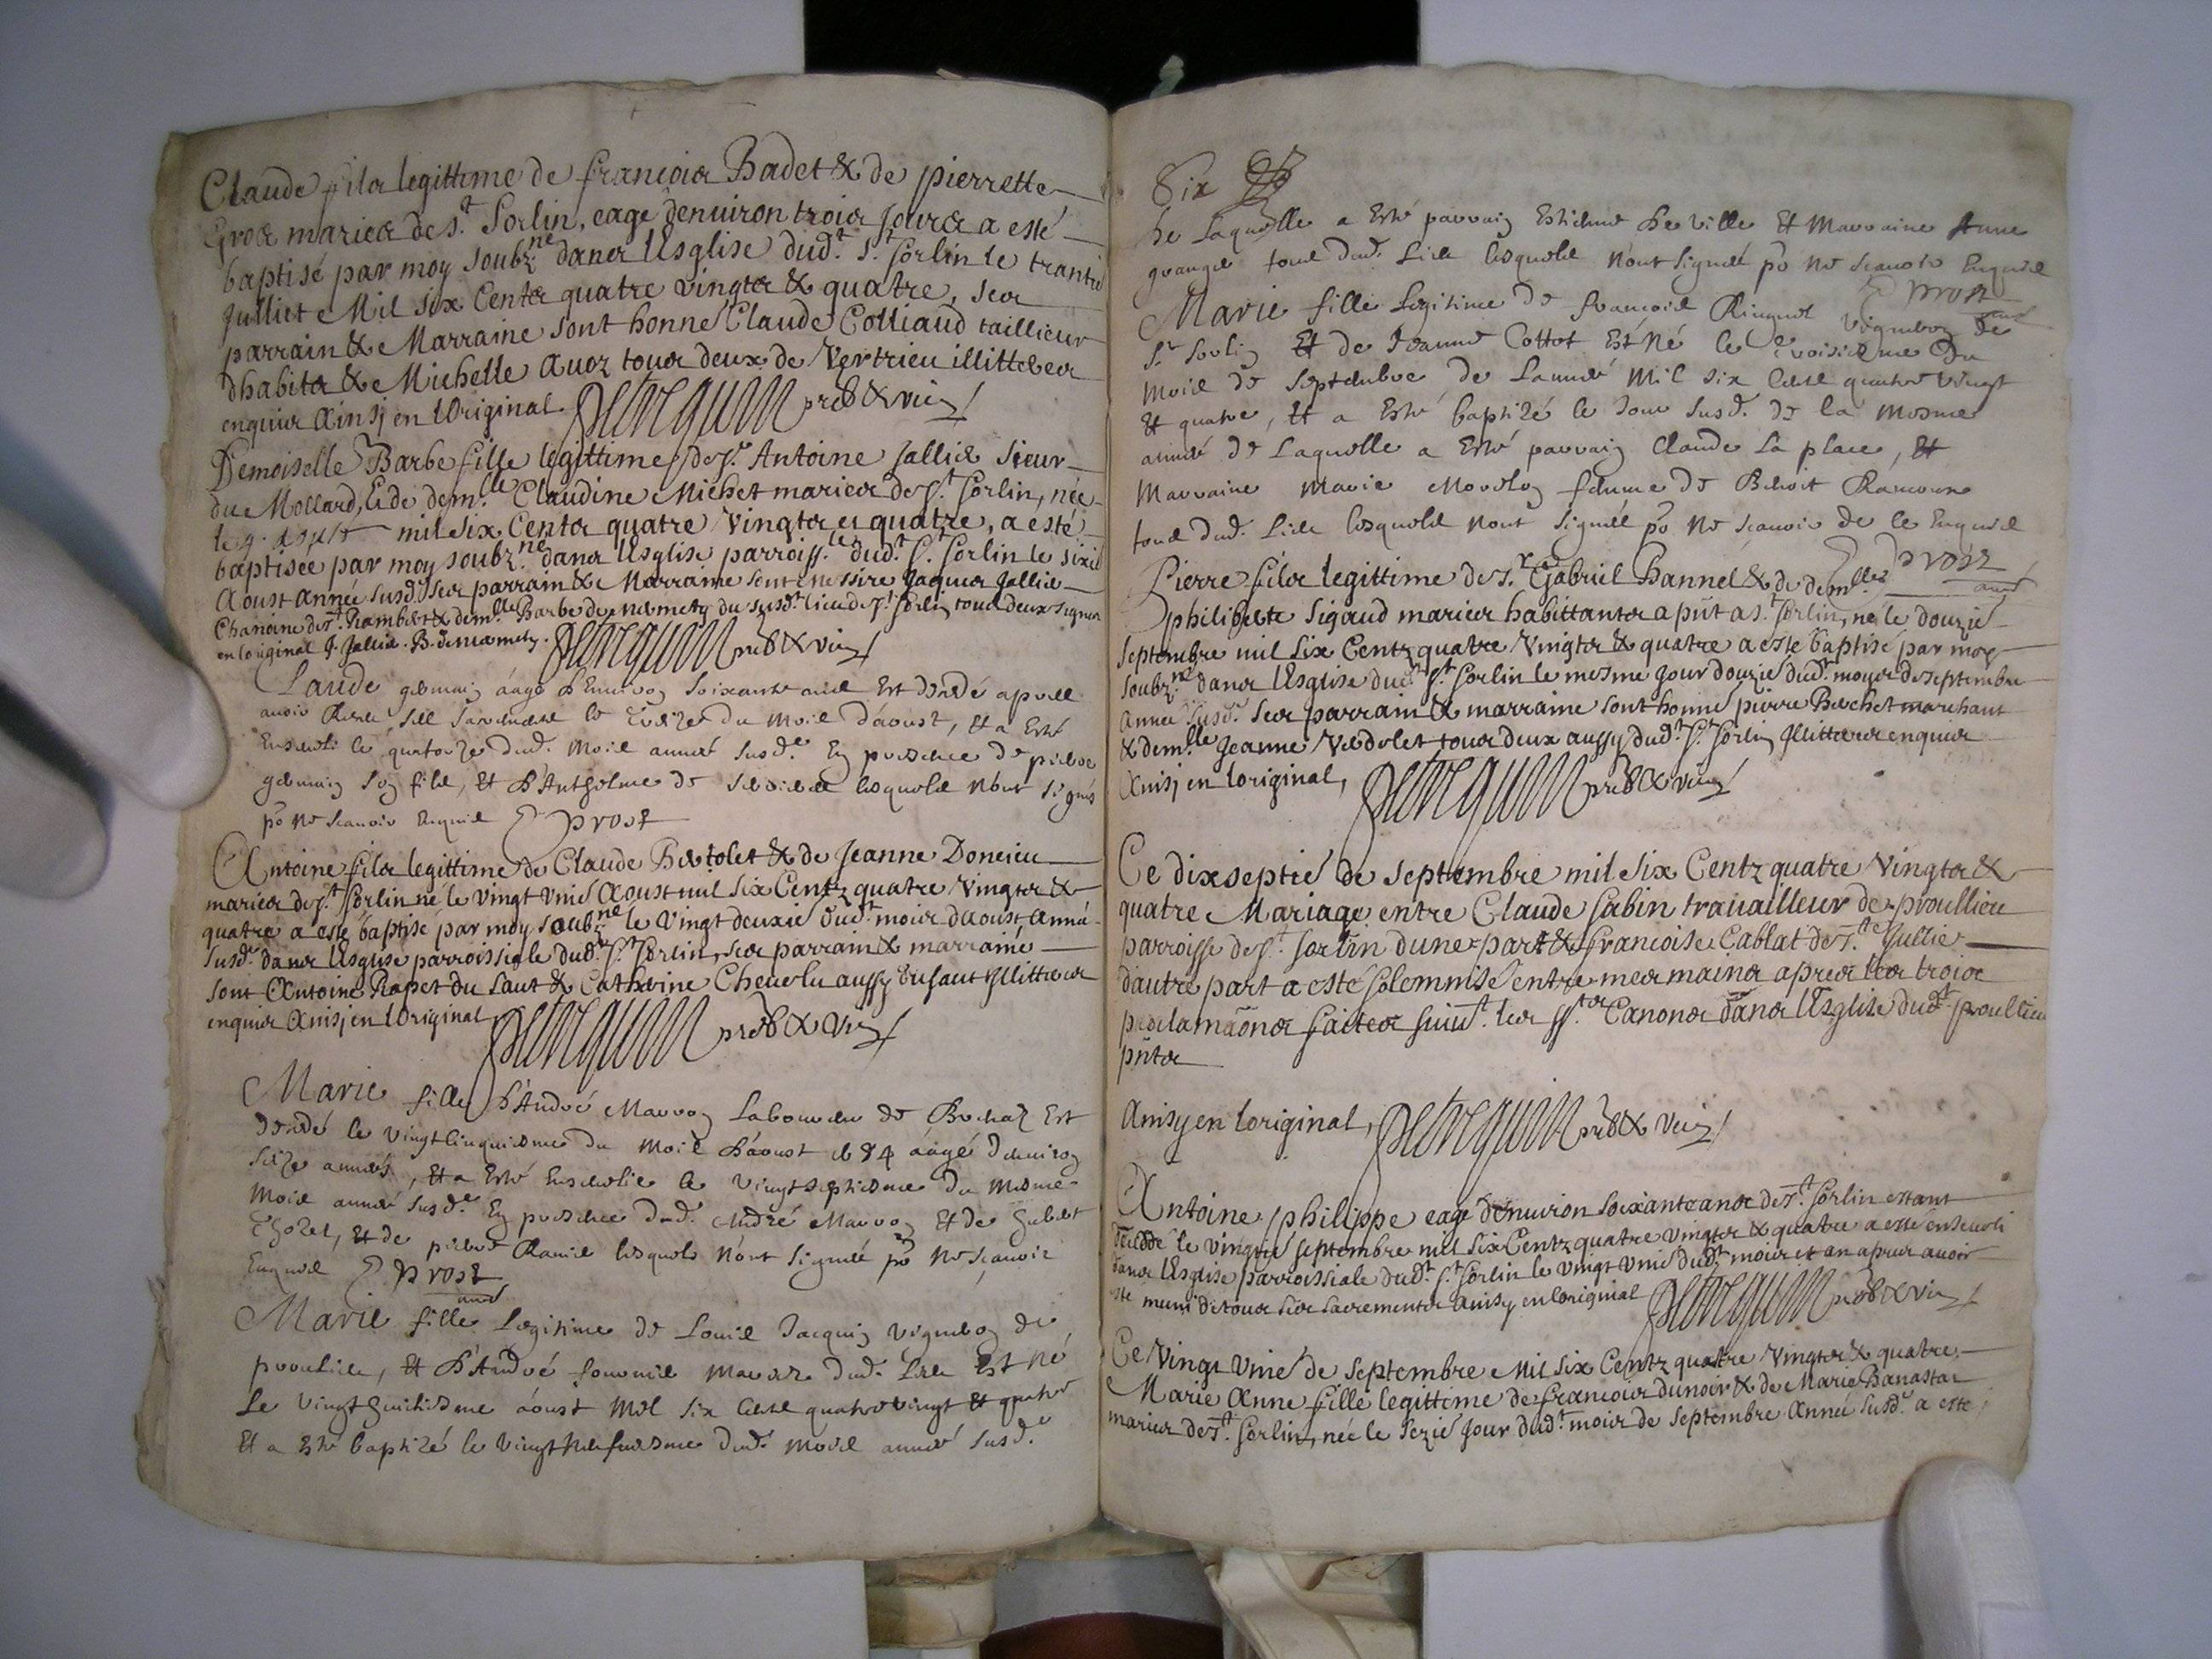 Claude fils legittime de francois Badet & de pierrette
Gros maries de s.t Sorlin, eage denuiron trois jours a esté
baptisé par moy soubz.né dans lEsglise dud.t s.t Sorlin le trantié
Julliet Mil six Cents quatre vingts & quatre, ses
parrain & Marraine sont honné Claude Colliaud taillieur
dhabits & Michelle Auoz tous deux de Vertrieu illitteres
enquis Ainsj en lOriginal prêb & vic
Demoiselle Barbe fille legittime de s.r Antoine Jallier sieur
du Mollard, & de dem.lle Claudine Michet maries de s.t Sorlin, née
le mil six Cents quatre Vingts et quatre, a ésté
baptisée par moy soubz.né dans lEsglise parroiss.le dud.t s.t Sorlin le sixié
Aoust Année susd. ses parrain & Marraine sont Messire Jaques Jallier
Chanoine de s.t Rambert & dem.lle Barbe de du susd.t lieu de s.t Sorlin tous deux signes
en loriginal J. Jallier. B. prêb & vic
Claude germain áagé d'Enuiron soixante ans Est décedé apres
auoir Receu ses sacrements le treize du mois d'aoust, et a Esté
Enseueli le quatorze dud. mois année susd.e En presence de pierre
germain son fils, et d'Anthelme de lesquels n'ont signés
po ne scauoir Enquis prost
Antoine fils legittime de Claude Bertolet & de Jeanne Doncieu
maries de s.t Sorlin né le vingt vnié Aoust mil six Centz quatre Vingts &
quatre a esté baptisé par moy soubz.né le Vingt deuxié dud.t mois daoust Année
susd.e dans lEsglise parroissiale dud.t s.t Sorlin, ses parrain & marraine
sont Antoine Rapet du Saut & Catherine Cheuelu aussy du saut Illitteres
enquis Ainsj en lOriginal prêb & vic
Marie fille d'André Marron Laboureur de Est
décedé le vingt cinquiesme du mois d'áoust 1684 áagé denuiron
seize années, et a Esté Enseuelie le vingt septiesme du mesme
mois année susd.e En presence dud. André Marron Et de
et de pierre Ramel lesquels n'ont signéé po ne scauoir
Enquis prost
Marie fille Legitime de Louis Jacquin vigneron de
proulieu, et d'André mariez dud. Lieu Est né
Le vingt huitiesme áoust Mil six Cents quatre vingt et quatre
Et a Esté baptizé le vingt neufuiesme dud. mois année susd.e
Six
de Laquelle a Esté parrain Estienne deville Et Marraine Anne
grange tous dud. Lieu lesquels n'ont signéé po ne scauoir Enquis
prost
Marie fille Legitime de françois Ringuet vigneron de
s.t sorlin Et de Jeanne Cottet Est Né le troisiesme du
mois de Septembre de Lannée Mil six Cents quatre vingt
Et quatre, Et a Esté baptizé le Jour susd. de la mesme
année de Laquelle a Esté parrain Claude La place, Et
Marraine Marie femme de Benoit
tous dud. Lieu lesquels n'ont signéé po ne scauoir de ce Enquis
prost
Pierre fils legittime de s.r Gabriel Bannel & de dem.lle
philiberte Sigaud maries habittants a pñt a s.t Sorlin, né le douzié
Septembre mil six Centz quatre Vingts & quatre a esté baptisé par moy
soubz.né dans lEsglise dud.t s.t Sorlin le mesme jour douzié dud.t moys de septembre
année susd.e ses parrain & marraine sont honné pierre Berchet marchant
& dem.lle Jeanne Verdolet tous deux aussy dud.t s.t Sorlin Illitteres enquis
Ainsj en loriginal, prêb & vic
Ce dix septié de septembre mil six Centz quatre Vingts &
quatre Mariage entre Claude Sabin trauailleur de proullieu
parroisse de s.t Sorlin dune part & francoise Cablat de s.te Jullie
dautre part a esté solemnisé entre mes mains apres les trois
proclamaõns faites suiu.t les ss.ts Canons dans lEsglise dud.t proullieu
pñts
Ainsy en loriginal, prêb & vic
Antoine philippe eage denuiron soixante ans de s.t Sorlin estant
decedde le vingtié septembre mil six Centz quatre vingts & quatre a esté enseueli
dans lEsglise parroissiale dud.t s.t Sorlin le vingt vnié dud.t mois et an apres auoir
esté muni de tous ses sacrements Ainsy en loriginal prêb & vic
Ce Vingt vnié de Septembre Mil six Centz quatre Vingts & quatre
Marie Anne fille legittime de francois dunoir & de Marie Banastat
maries de s.t Sorlin, née le sezié jour dud.t mois de septembre Année susd.e a esté